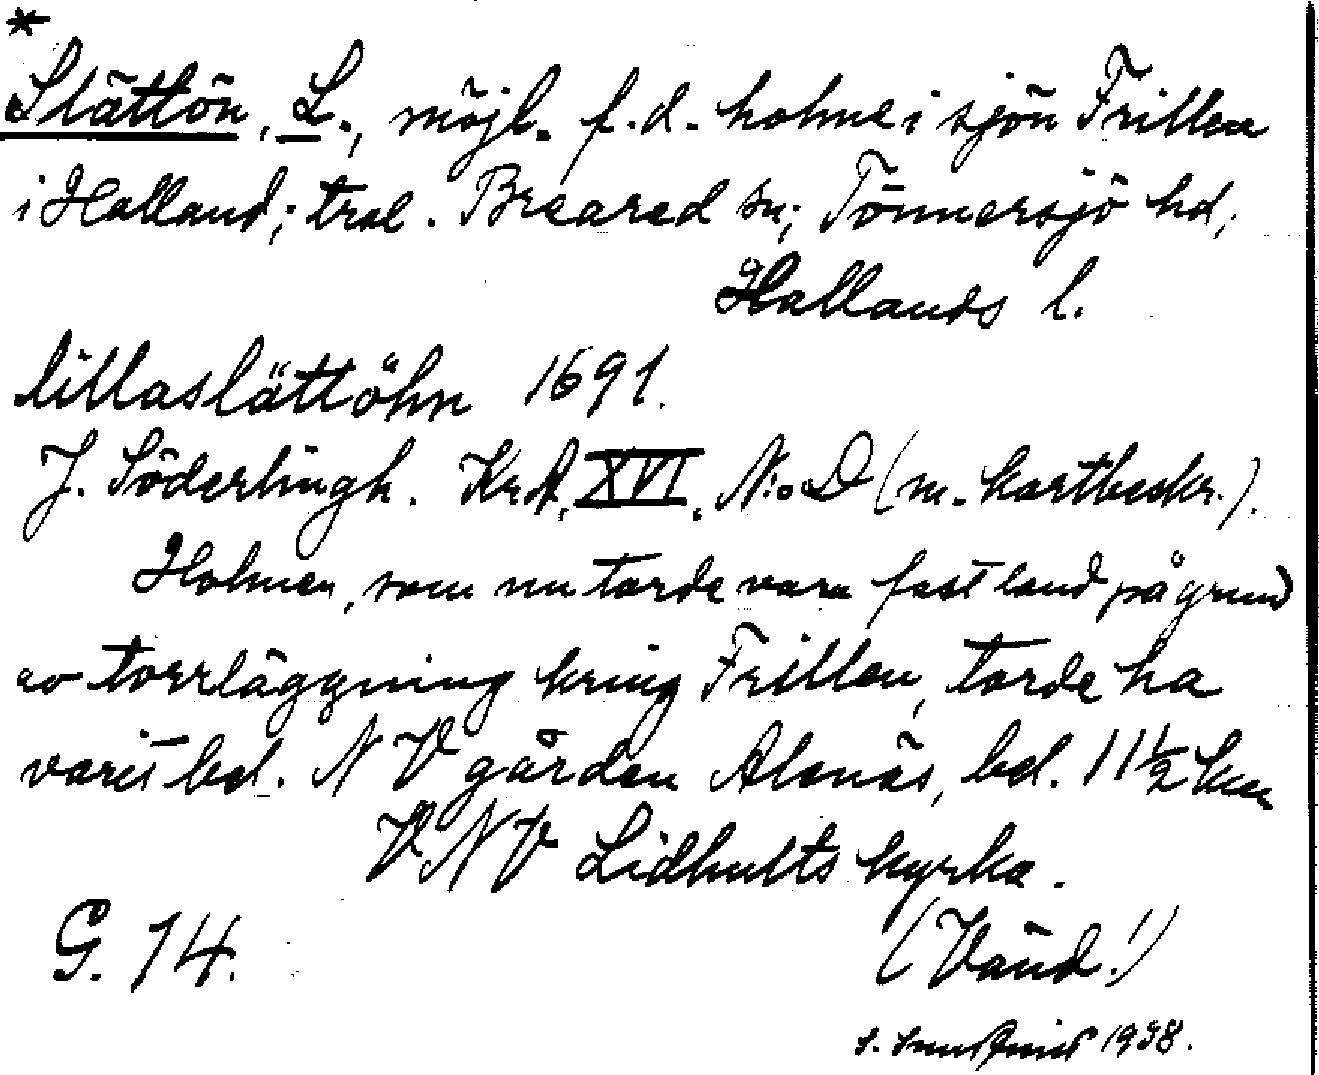 *
Slättön, L., möjl. f.d. holme i sjön Frillen
i Halland; trol. Breared sn; Tönnersjö hd,
Hallands l.
lillaslättöhn 1691.
J. Söderlingh. Kr.A. XVI. N:o D (m. kartbeskr.).
Holmen, som nu torde vara fast land på grund
av torrläggning kring Frillen, torde ha
varit bel. N V gården Alenäs, bel. 11½ km
V N V Lidhults kyrka.
G. 14. (Vänd!)
1938.